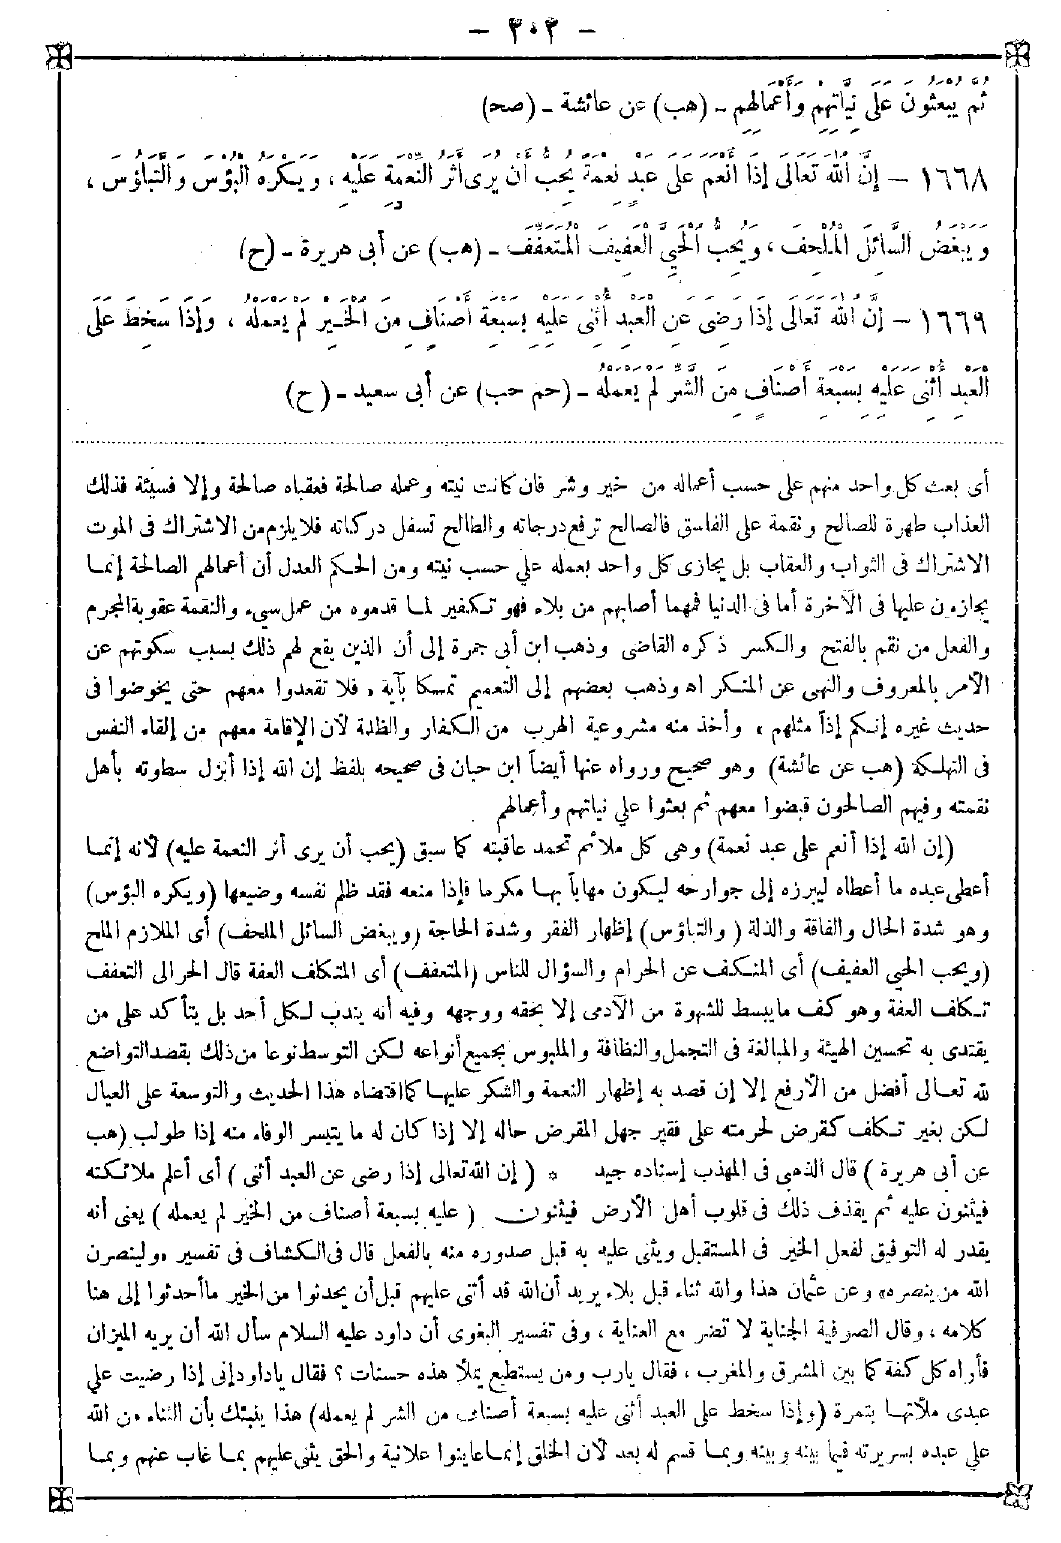 - ٢٠٢ -
ثُمَّ يُبْعَثُونَ عَلَى نِيَّاتِهِمْ وَأَعْمَالِهِمْ - (هب) عن عائشة - (صح)
١٦٦٨ - إِنَّ اللهَ تَعَالَى إِذَا أَنْعَمَ عَلَى عَبْدٍ نِعْمَةً يُحِبُّ أَنْ يَرَى أَثَرَ النِّعْمَةِ عَلَيْهِ ، وَيَكْرَهُ الْبُؤْسَ وَالتَّبَاؤُسَ ،
وَيُبْغِضُ السَّائِلَ الْمُلْحِفَ ، وَيُحِبُّ الْحَيِيَّ الْعَفِيفَ الْمُتَعَفِّفَ - (هب) عن أبى هريرة - (ح)
١٦٦٩ - إِنَّ اللهَ تَعَالَى إِذَا رَضِىَ عَنِ الْعَبْدِ أَثْنَى عَلَيْهِ بِسَبْعَةِ أَصْنَافٍ مِنَ الْخَيْرِ لَمْ يَعْمَلْهُ ، وَإِذَا سَخِطَ عَلَى
الْعَبْدِ أَثْنَى عَلَيْهِ بِسَبْعَةِ أَصْنَافٍ مِنَ الشَّرِّ لَمْ يَعْمَلْهُ - (حم حب) عن أبى سعيد - (ح)
أى بعث كل واحد منهم على حسب أعماله من خير وشر فان كانت نيته وعمله صالحة فعقباه صالحة وإلا فسيئة فذلك
العذاب طهرة للصالح ونقمة على الفاسق فالصالح ترفع درجاته والطالح تسفل دركاته فلا يلزم من الاشتراك فى الموت
الاشتراك فى الثواب والعقاب بل يجازى كل واحد بعمله على حسب نيته ومن الحكم العدل أن أعمالهم الصالحة إنما
يجازون عليها فى الآخرة أما فى الدنيا فمهما أصابهم من بلاء فهو تكفير لما قدموه من عمل سيء والنقمة عقوبة المجرم
والفعل من نقم بالفتح والكسر ذكره القاضى وذهب ابن أبى جمرة إلى أن الذين يقع لهم ذلك بسبب سكوتهم عن
الأمر بالمعروف والنهى عن المنكر اه وذهب بعضهم إلى التعميم تمسكا بآية « فلا تقعدوا معهم حتى يخوضوا فى
حديث غيره إنكم إذاً مثلهم » وأخذ منه مشروعية الهرب من الكفار والظلمة لأن الإقامة معهم من إلقاء النفس
فى التهلكة (هب عن عائشة) وهو صحيح ورواه عنها أيضاً ابن حبان فى صحيحه بلفظ إن الله إذا أنزل سطوته بأهل
نقمته وفيهم الصالحون قبضوا معهم ثم بعثوا على نياتهم وأعمالهم
(إن الله إذا أنعم على عبد نعمة) وهى كل ملائم تحمد عاقبته كما سبق (يحب أن يرى أثر النعمة عليه) لأنه إنما
أعطى عبده ما أعطاه ليبرزه إلى جوارحه ليكون مهاباً بها مكرما فإذا منعه فقد ظلم نفسه وضيعها (ويكره البؤس)
وهو شدة الحال والفاقة والذلة ( والتباؤس) إظهار الفقر وشدة الحاجة (ويبغض السائل الملحف) أى الملازم الملح
(ويحب الحي العفيف) أى المنكف عن الحرام والسؤال للناس (المتعفف) أى المتكلف العفة قال الحرالى التعفف
تكلف العفة وهو كف ما يبسط للشهوة من الآدمى إلا بحقه ووجهه وفيه أنه يندب لكل أحد بل يتأكد على من
يقتدى به تحسين الهيئة والمبالغة فى التجمل والنظافة والملبوس بجميع أنواعه لكن التوسط نوعا من ذلك بقصد التواضع
لله تعالى أفضل من الأرفع إلا إن قصد به إظهار النعمة والشكر عليها كما اقتضاه هذا الحديث والتوسعة على العيال
لكن بغير تكلف كقرض لحرمته على فقير جهل المقرض حاله إلا إذا كان له ما يتيسر الوفاء منه إذا طولب (هب
عن أبى هريرة ) قال الذهبى فى المهذب إسناده جيد * ( إن الله تعالى إذا رضى عن العبد أثنى ) أى أعلم ملائكته
فيثنون عليه ثم يقذف ذلك فى قلوب أهل الأرض فيثنون ( عليه بسبعة أصناف من الخير لم يعمله ) يعنى أنه
يقدر له التوفيق لفعل الخير فى المستقبل ويثنى عليه به قبل صدوره منه بالفعل قال فى الكشاف فى تفسير «ولينصرن
الله من ينصره» وعن عثمان هذا والله ثناء قبل بلاء يريد أن الله قد أثنى عليهم قبل أن يحدثوا من الخير ما أحدثوا إلى هنا
كلامه ، وقال الصوفية الجناية لا تضر مع العناية ، وفى تفسير البغوى أن داود عليه السلام سأل الله أن يريه الميزان
فأراه كل كفة كما بين المشرق والمغرب ، فقال يارب ومن يستطيع يملأ هذه حسنات ؟ فقال ياداود إنى إذا رضيت على
عبدى ملأتها بتمرة (وإذا سخط على العبد أثنى عليه بسبعة أصناف من الشر لم يعمله) هذا ينبئك بأن الثناء من الله
على عبده بسريرته فيما بينه وبينه وبما قسم له بعد لأن الخلق إنما عاينوا علانية والحق يثنى عليهم بما غاب عنهم وبما